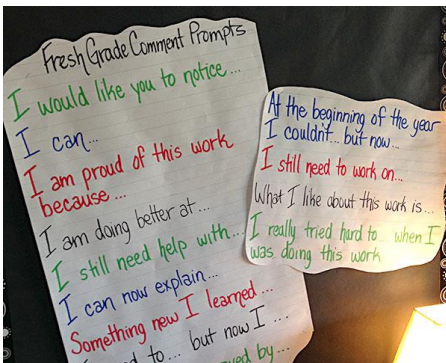 FreshGrade Comment Prompts
I would like you to notice...
I can...
I am proud of this work
because...
I am doing better at...
I still need help with...
I can now explain...
Something new I learned...
to... but now I...
by...
At the beginning of the year
I couldn't... but now...
I still need to work on...
What I like about this work is...
I really tried hard to... when I
was doing this work